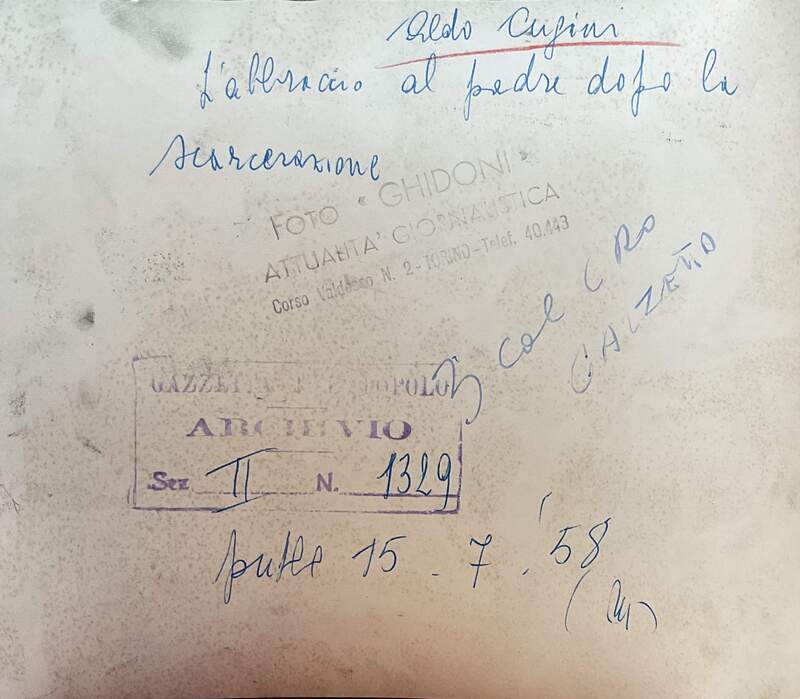 Aldo Cugini
L'abbraccio al padre dopo la
scarcerazione
FOTO "GHIDONI"
ATTUALITA' GIORNALISTICA
Corso Valdocco N. 2 - TORINO - Telef. 40.443
3 col CRO
GAZZETTA DEL POPOLO
ARCHIVIO
Sez II N. 1329
15.7.'58